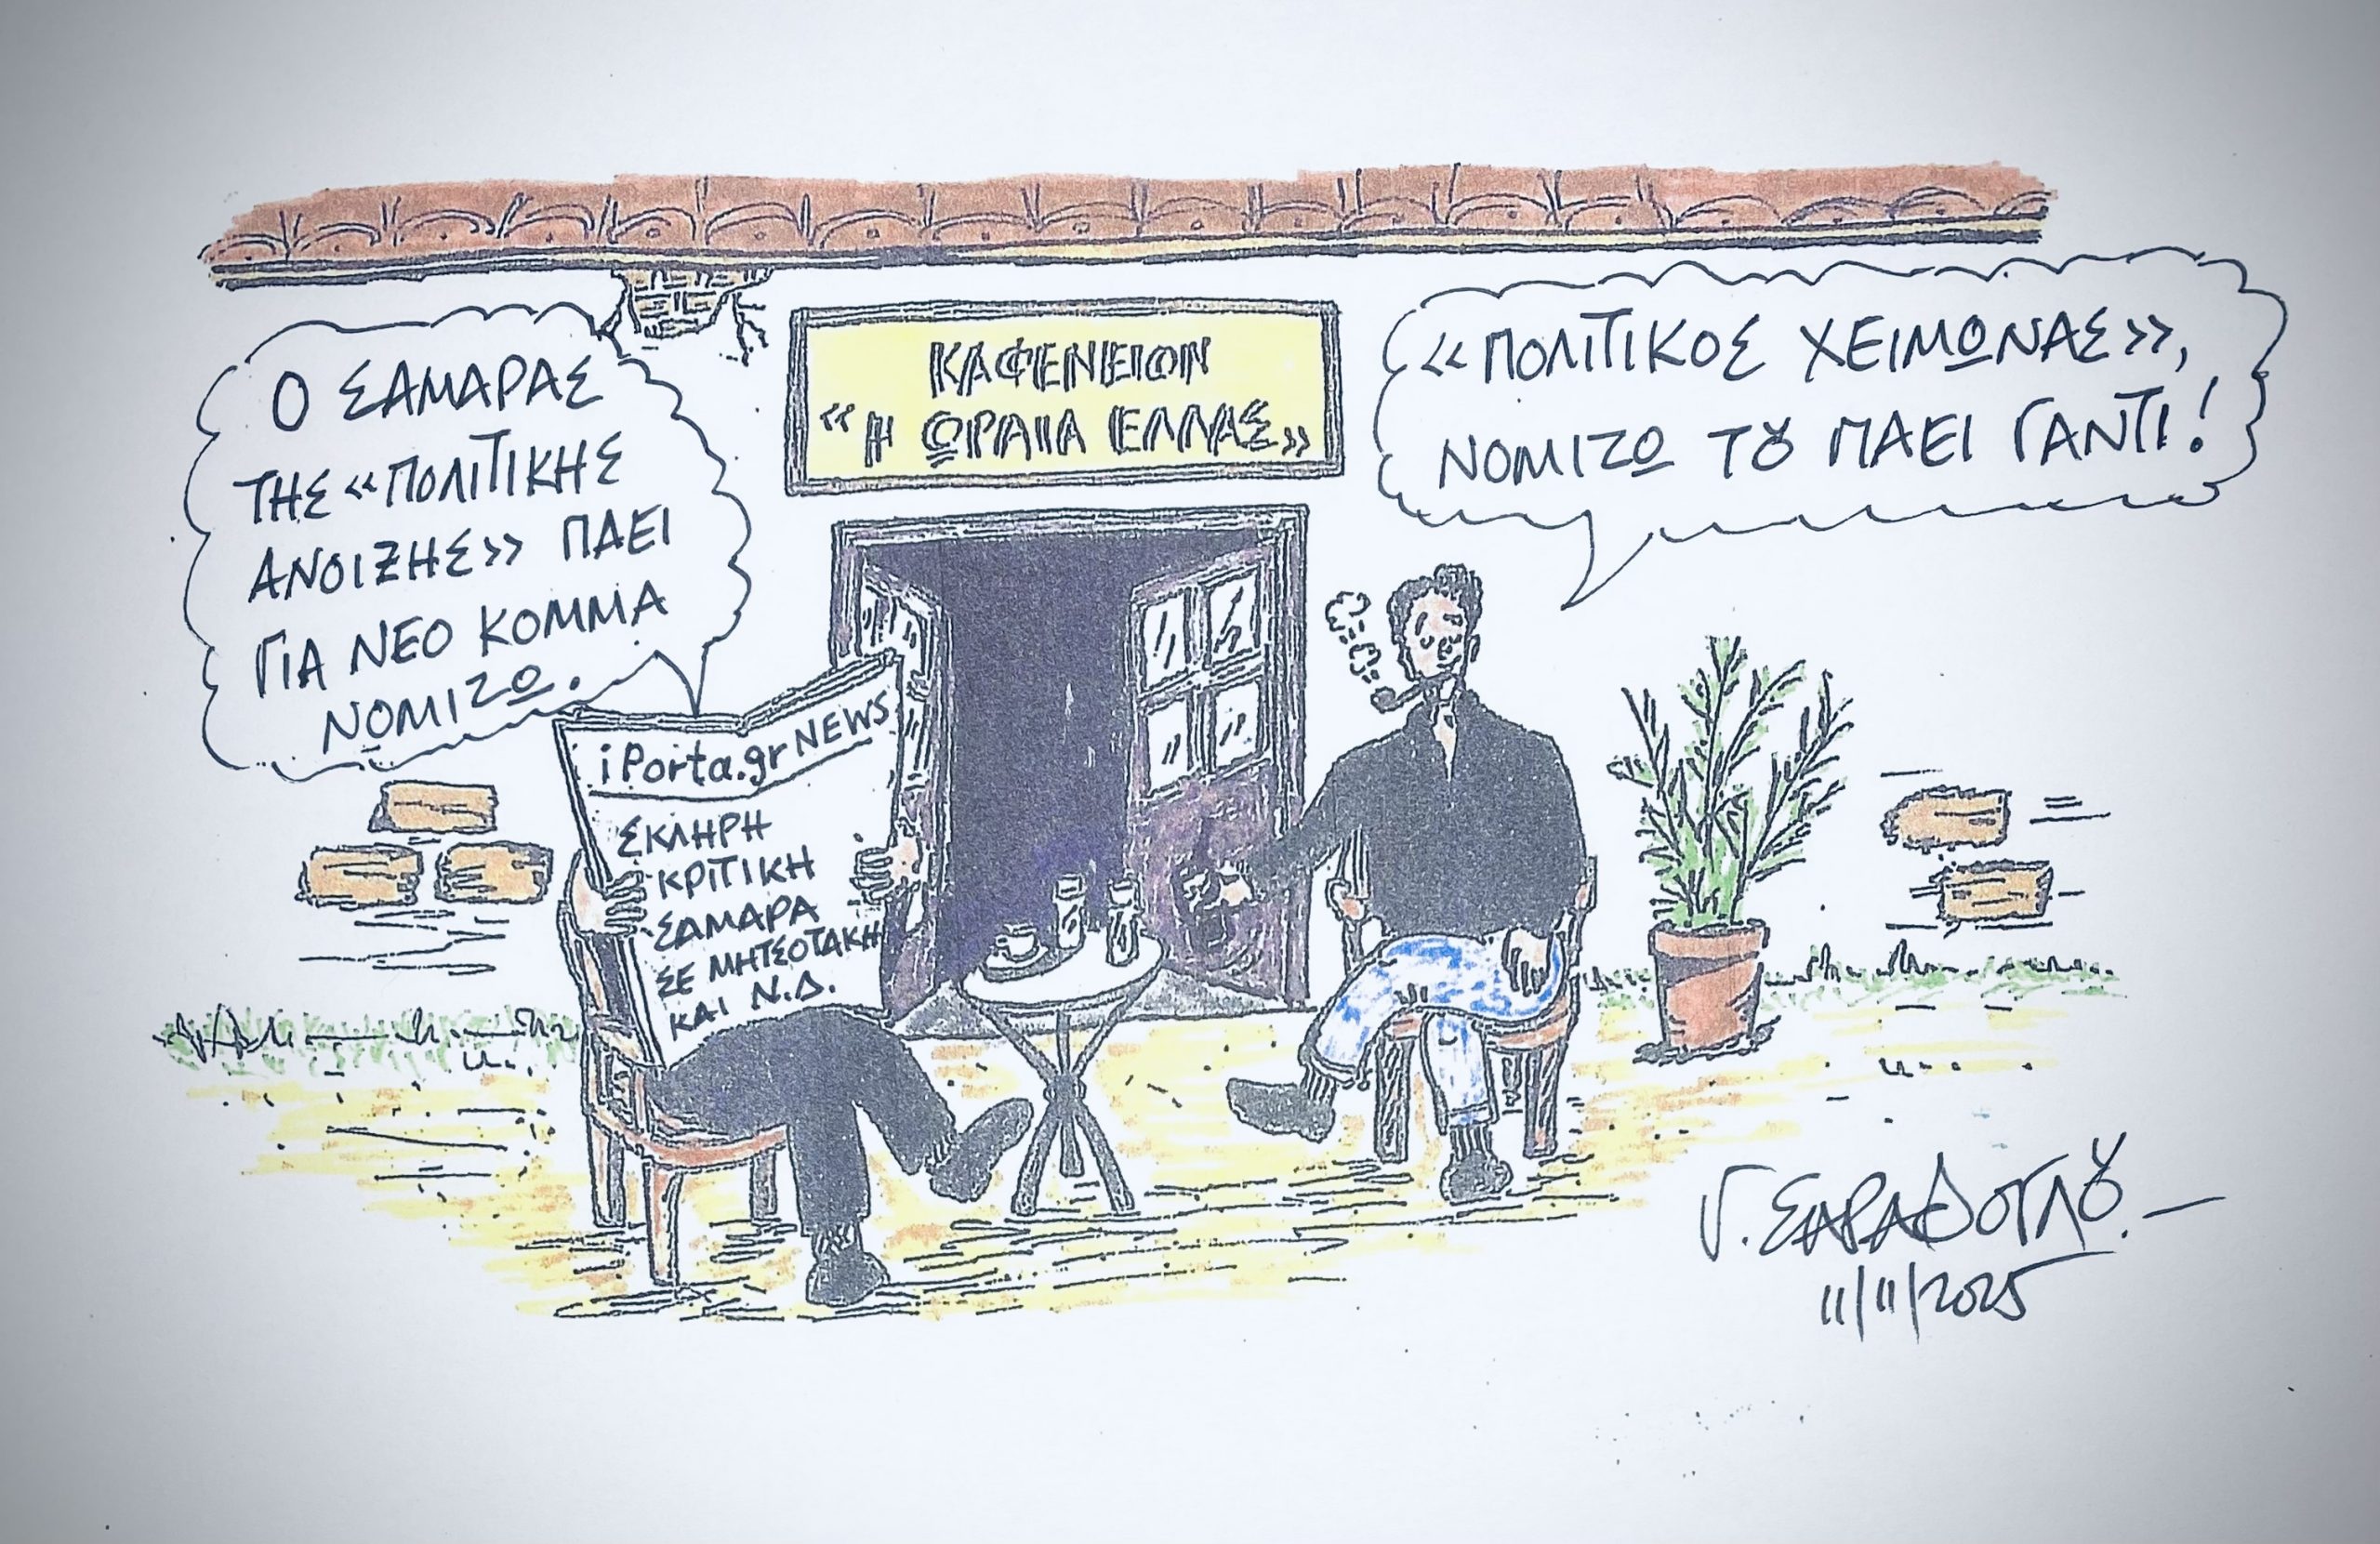 ΚΑΦΕΝΕΙΟΝ
“Η ΩΡΑΙΑ ΕΛΛΑΣ»
Ο ΣΑΜΑΡΑΣ
ΤΗΣ «ΠΟΛΙΤΙΚΗΣ
ΑΝΟΙΞΗΣ» ΠΑΕΙ
ΓΙΑ ΝΕΟ ΚΟΜΜΑ
ΝΟΜΙΖΩ.
«ΠΟΛΙΤΙΚΟΣ ΧΕΙΜΩΝΑΣ»,
ΝΟΜΙΖΩ ΤΟΥ ΠΑΕΙ ΓΑΝΤΙ!
iPorta.gr NEWS
ΣΚΛΗΡΗ
ΚΡΙΤΙΚΗ
ΣΑΜΑΡΑ
ΣΕ ΜΗΤΣΟΤΑΚΗ
ΚΑΙ Ν.Δ.
Γ. ΣΑΡΑΔΟΓΛΟΥ
11/11/2025